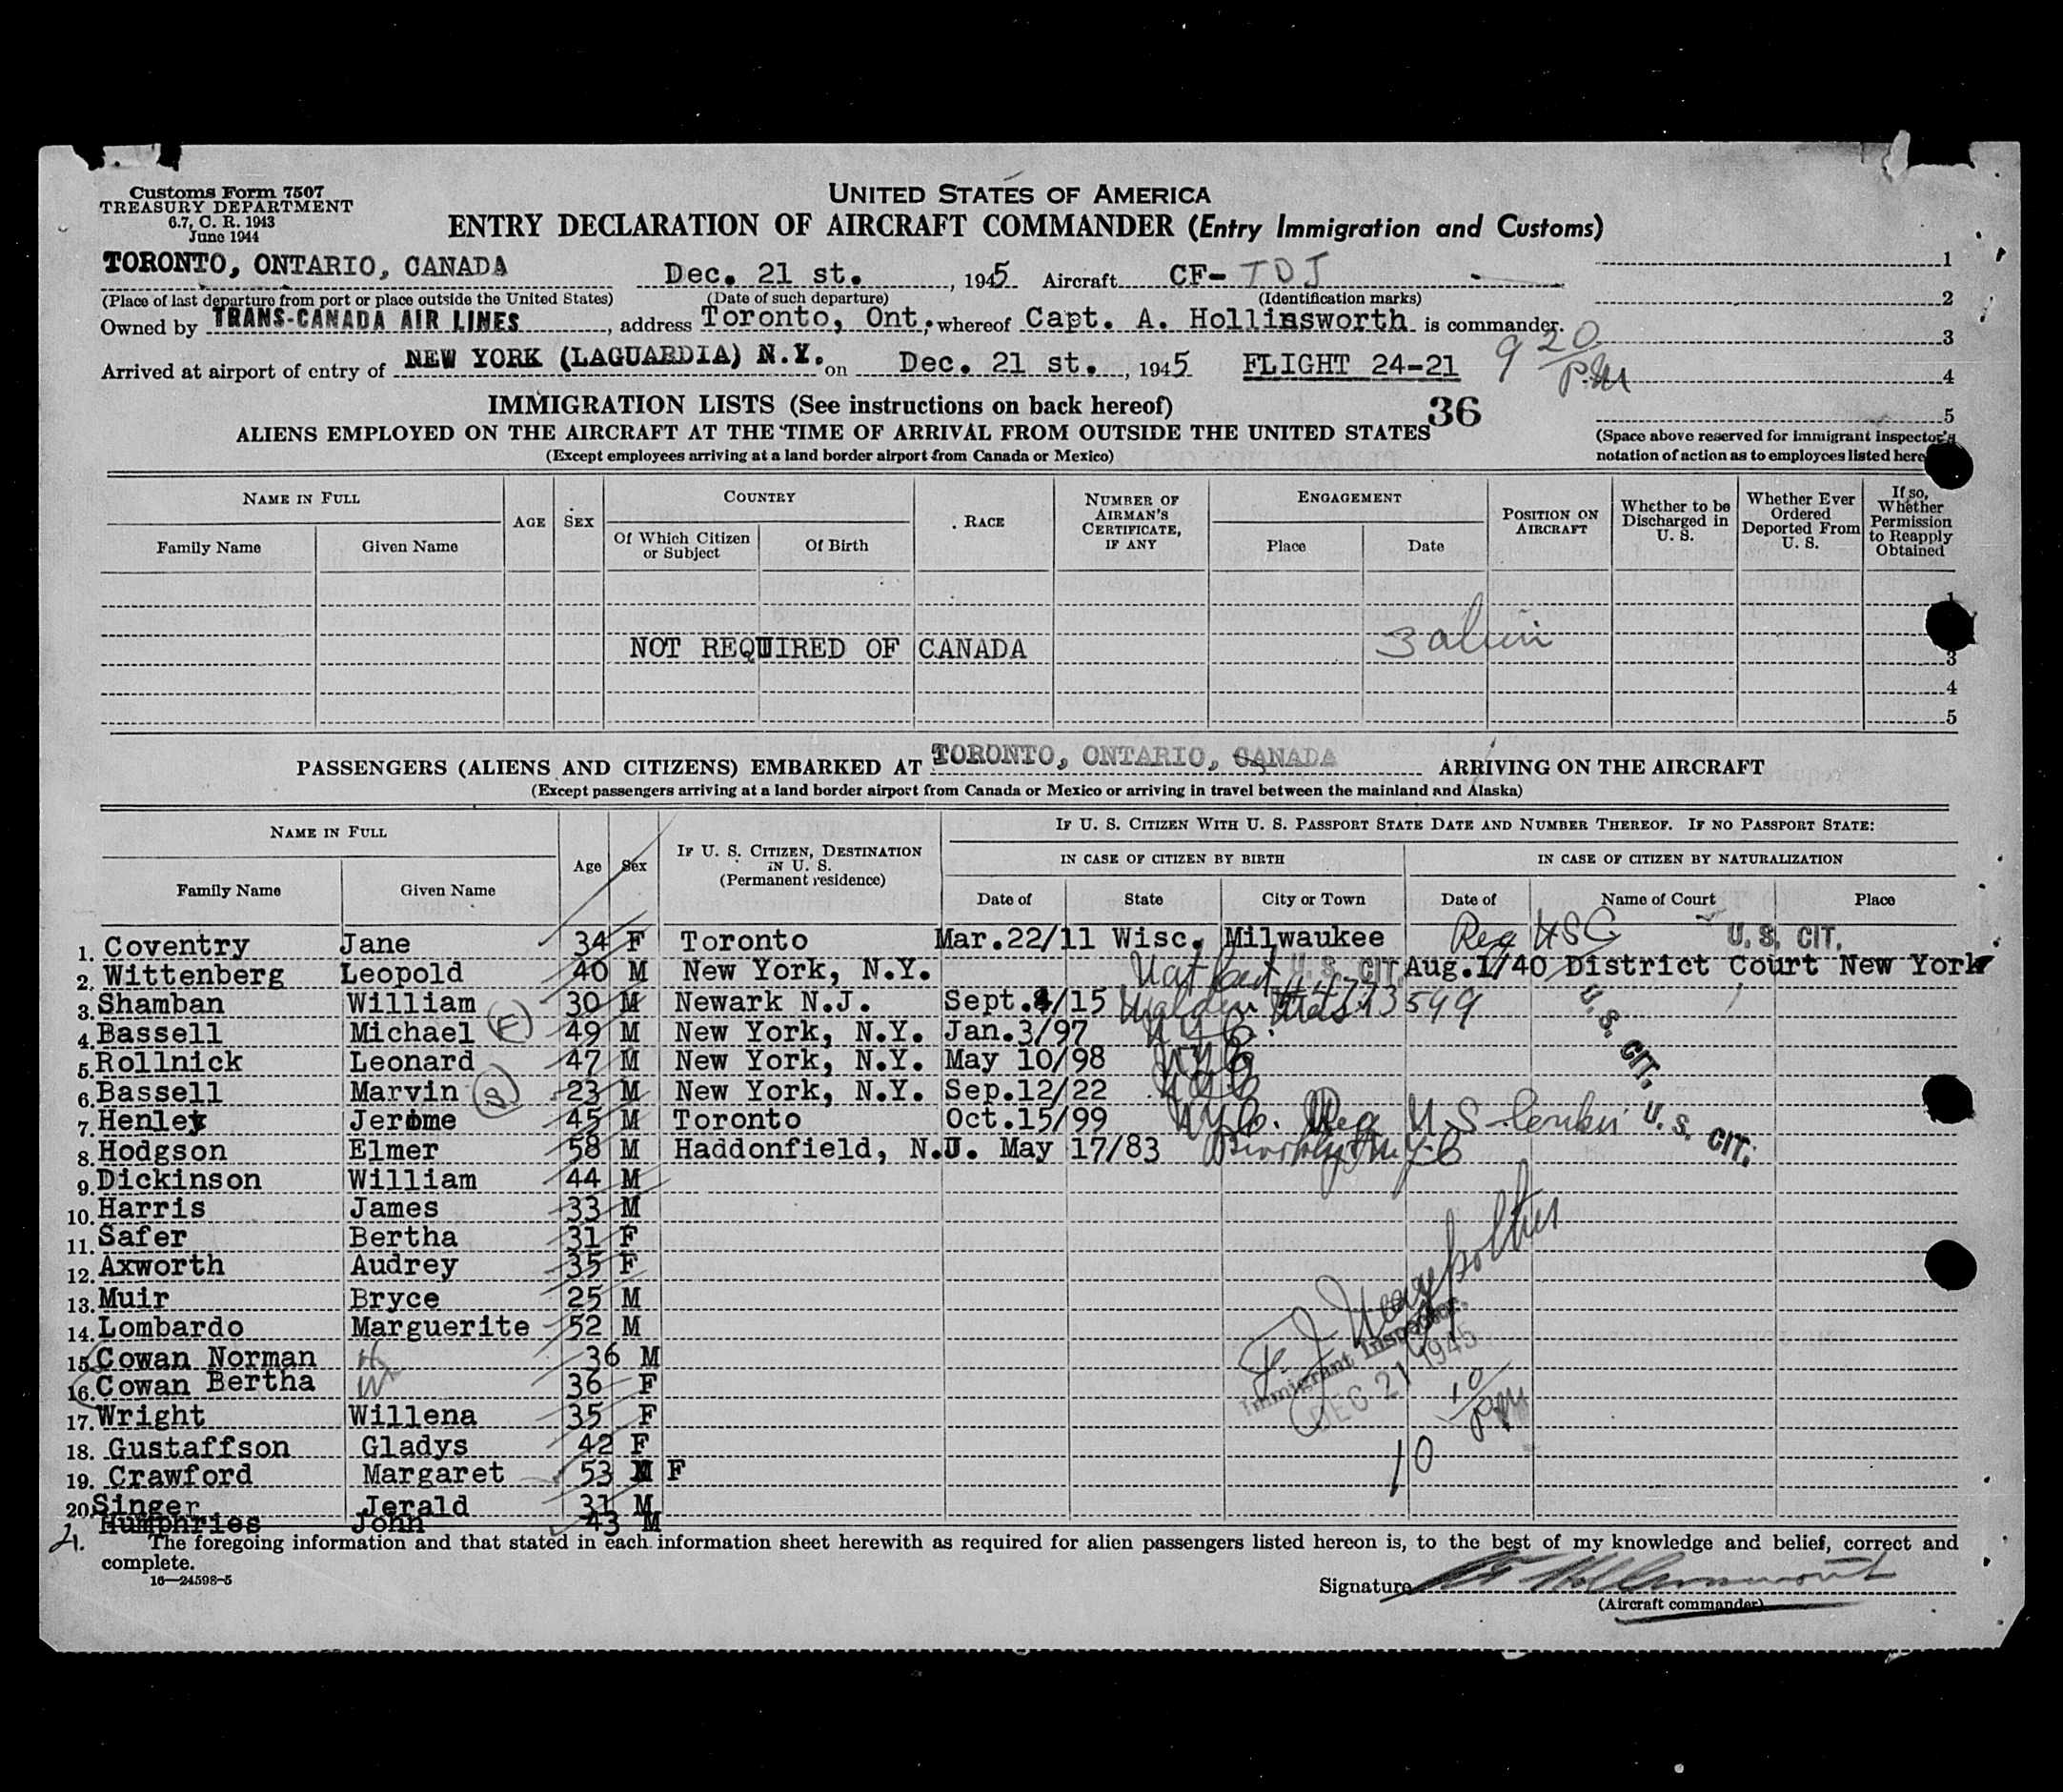 Customs Form 7507
TREASURY DEPARTMENT
6.7, C. R. 1943
June 1944
UNITED STATES OF AMERICA
ENTRY DECLARATION OF AIRCRAFT COMMANDER (Entry Immigration and Customs)
TORONTO, ONTARIO, CANADA Dec. 21 st. , 1945 Aircraft CF- TDJ
(Place of last departure from port or place outside the United States) (Date of such departure) (Identification marks)
Owned by TRANS-CANADA AIR LINES , address Toronto, Ont. , whereof Capt. A. Hollinsworth is commander.
Arrived at airport of entry of NEW YORK (LAGUARDIA) N.Y. on Dec. 21 st. , 1945 FLIGHT 24-21 9 20 P.M
1
2
3
4
5
(Space above reserved for immigrant inspector's
notation of action as to employees listed here
IMMIGRATION LISTS (See instructions on back hereof) 36
ALIENS EMPLOYED ON THE AIRCRAFT AT THE TIME OF ARRIVAL FROM OUTSIDE THE UNITED STATES
(Except employees arriving at a land border airport from Canada or Mexico)
NAME IN FULL AGE SEX COUNTRY RACE NUMBER OF AIRMAN'S CERTIFICATE, IF ANY ENGAGEMENT POSITION ON AIRCRAFT Whether to be Discharged in U. S. Whether Ever Ordered Deported From U. S. If so, Whether Permission to Reapply Obtained
Family Name Given Name Of Which Citizen or Subject Of Birth Place Date
1
NOT REQUIRED OF CANADA
3
4
5
PASSENGERS (ALIENS AND CITIZENS) EMBARKED AT TORONTO, ONTARIO, CANADA ARRIVING ON THE AIRCRAFT
(Except passengers arriving at a land border airport from Canada or Mexico or arriving in travel between the mainland and Alaska)
NAME IN FULL Age Sex IF U. S. CITIZEN, DESTINATION IN U. S. (Permanent residence) IF U. S. CITIZEN WITH U. S. PASSPORT STATE DATE AND NUMBER THEREOF. IF NO PASSPORT STATE:
IN CASE OF CITIZEN BY BIRTH IN CASE OF CITIZEN BY NATURALIZATION
Family Name Given Name Date of State City or Town Date of Name of Court Place
1. Coventry Jane 34 F Toronto Mar.22/11 Wisc. Milwaukee Reg USC U. S. CIT.
2. Wittenberg Leopold 40 M New York, N.Y. U. S. CIT. Aug.1/40 District Court New York
3. Shamban William 30 M Newark N.J. Sept.4/15
4. Bassell Michael (F) 49 M New York, N.Y. Jan.3/97 NYC
5. Rollnick Leonard 47 M New York, N.Y. May 10/98 NYC U. S. CIT.
6. Bassell Marvin (S) 23 M New York, N.Y. Sep.12/22 NYC
7. Henley Jerome 45 M Toronto Oct.15/99 NYC. Reg U.S. U. S. CIT.
8. Hodgson Elmer 58 M Haddonfield, N.J. May 17/83
9. Dickinson William 44 M
10. Harris James 33 M
11. Safer Bertha 31 F
12. Axworth Audrey 35 F
13. Muir Bryce 25 M
14. Lombardo Marguerite 52 M
15. Cowan Norman H 36 M
16. Cowan Bertha W 36 F
17. Wright Willena 35 F
18. Gustaffson Gladys 42 F
19. Crawford Margaret 53 M F
20. Singer Jerald 31 M
21. Humphries John 43 M
Immigrant Inspector.
DEC 21 1945
10 P.M
10
The foregoing information and that stated in each information sheet herewith as required for alien passengers listed hereon is, to the best of my knowledge and belief, correct and
complete.
16—24598-5
Signature
(Aircraft commander)